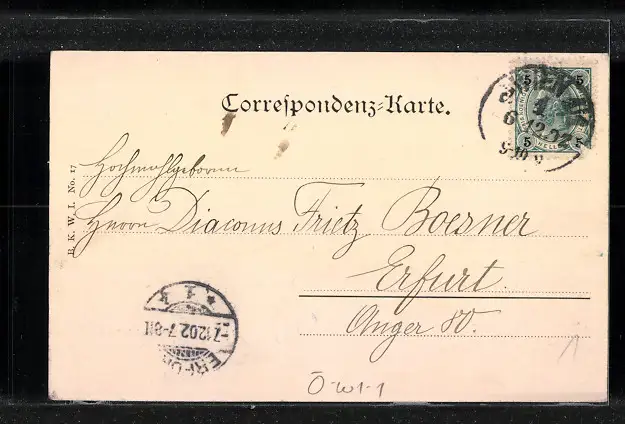 Correspondenz-Karte.
5 5
WIEN
6 12 02
5 5
HELLER
B. K. W. I. No. 17
Hochwohlgeboren
Herrn Diaconus Frietz Boesner
Erfurt.
Anger 80.
ERFURT
-7.12.02.7-8N
* 1 k
Ö-W1-1